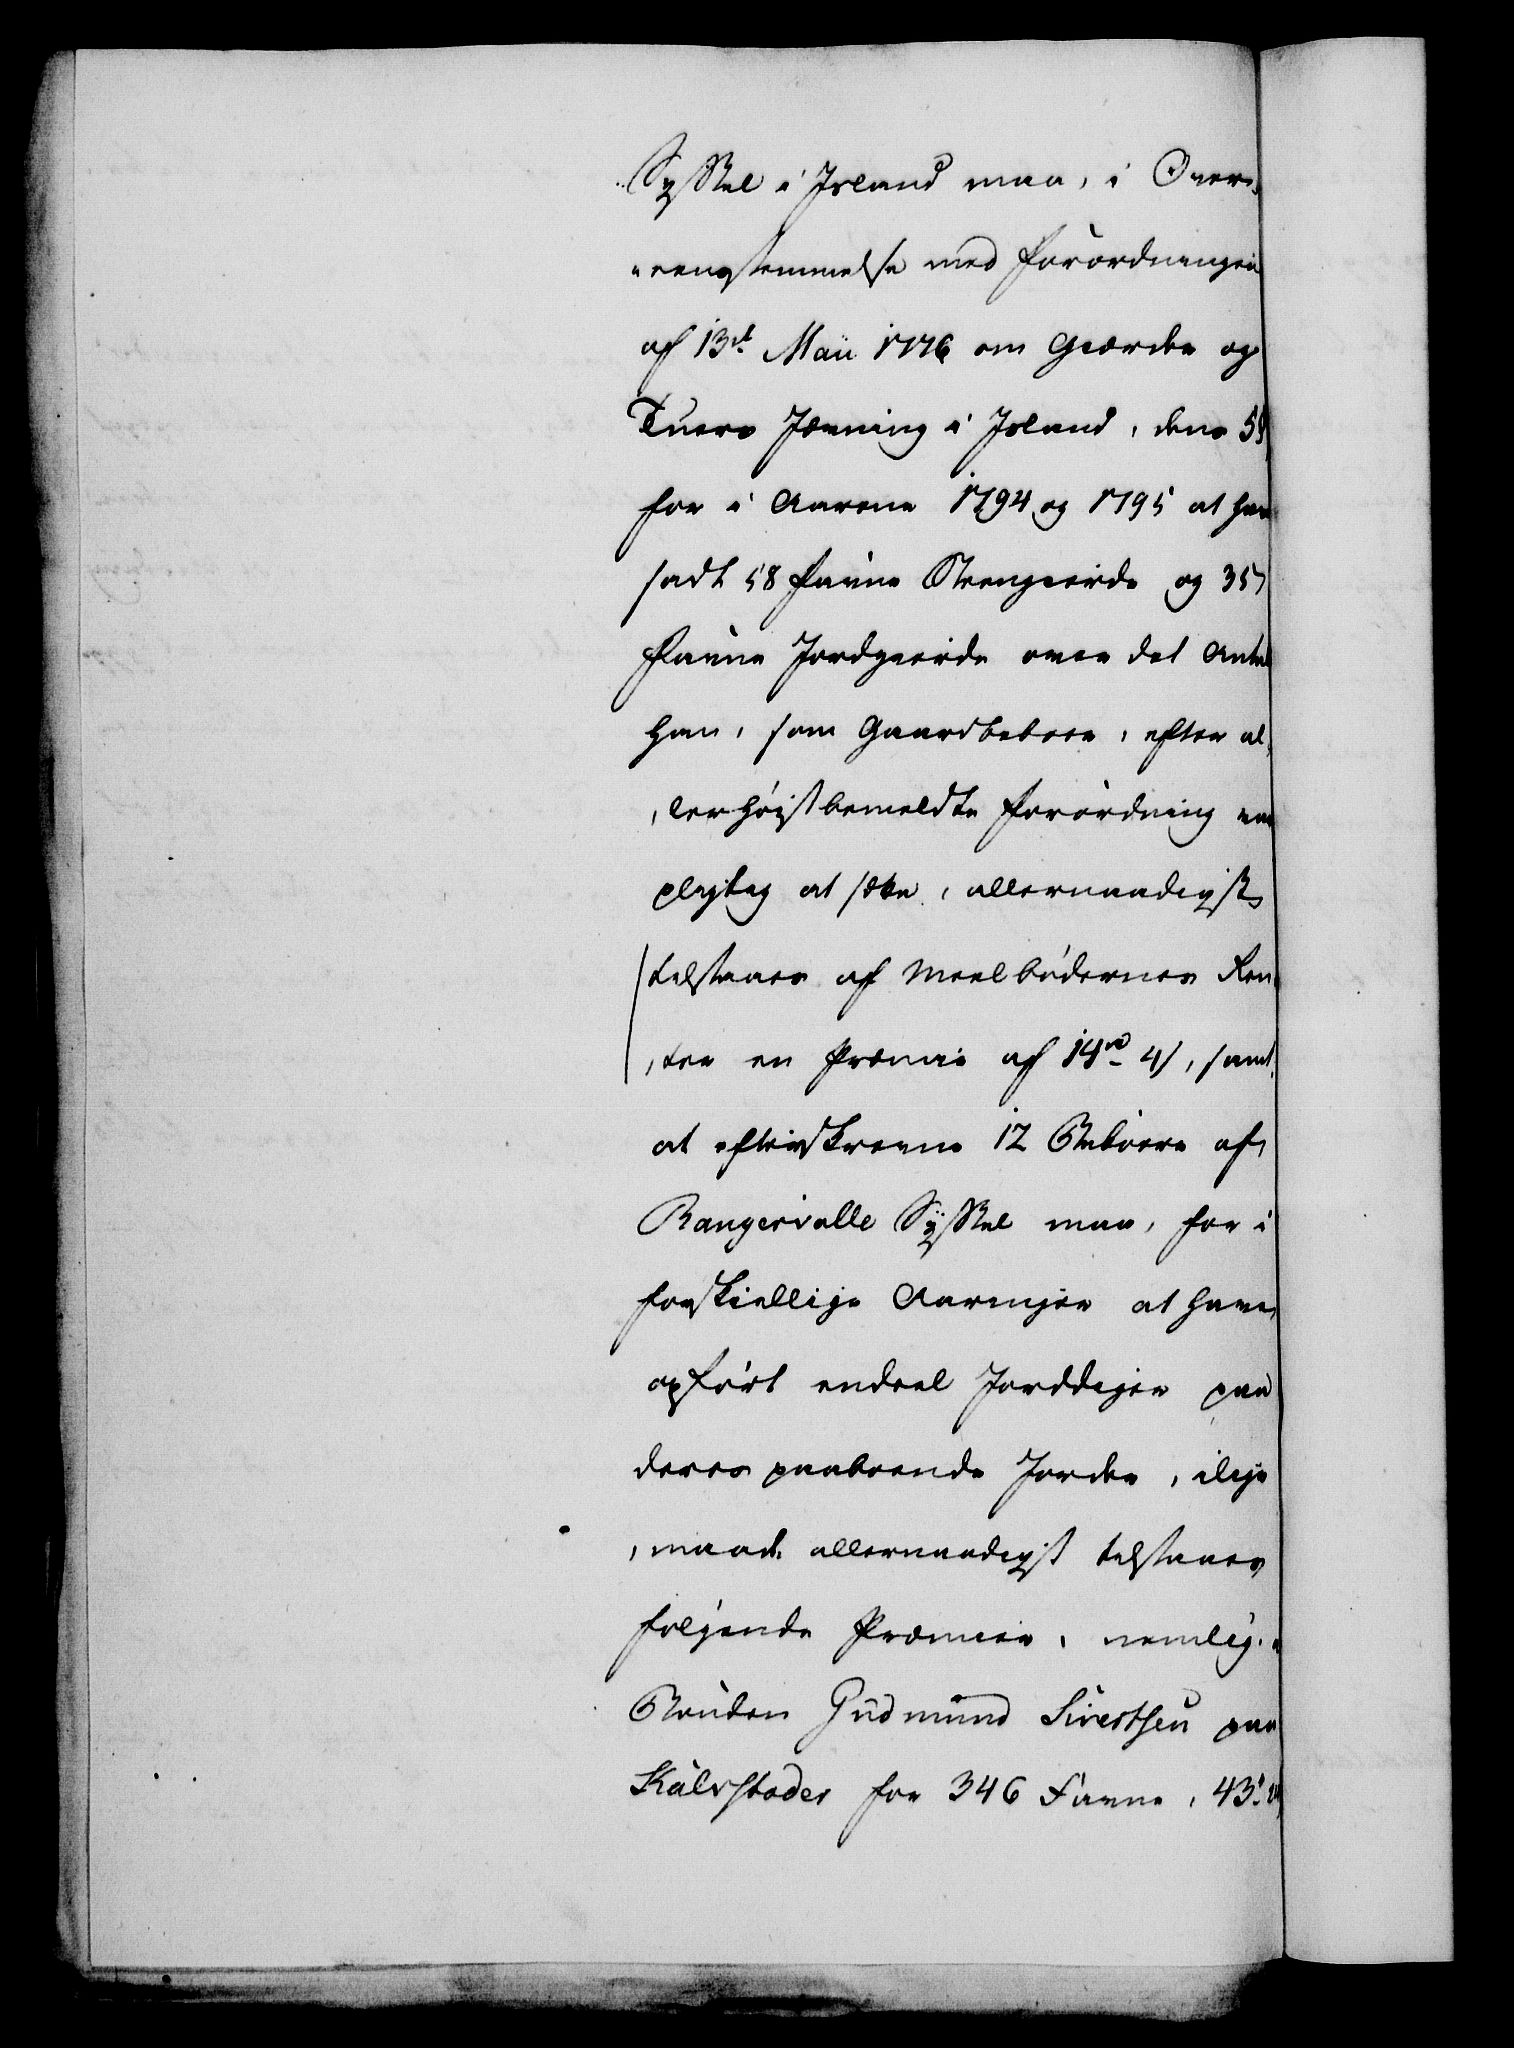 Syssel i Island maa, i Over-
eensstemmelse med Forordningen
af 13de Maii 1776 om Gierder og
Tuers Jævning i Island, dens
for i Aarene 1794 og 1795 at have
sadt 58 Favne Steengierde og 357
Favne Jordgierde over det Antal
han, som Gaardbeboer, efter al-
lerhøistbemeldte Forordning var
pligtig at sætte, allernaadigst
tilstaaes af Meelbødernes Ren-
ter en Præmie af 14rd 4s, samt
at efterskrevne 12 Beboere af
Rangervalle Syssel maa, for i
forskiellige Aaringer at have
opført endeel Jorddiger paa
deres paaboende Jorder, lige-
maade allernaadigst tilstaaes
følgende Præmier, nemlig:
Bonden Gudmund Sivertsen paa
Kalvstader for 346 Favne, 43